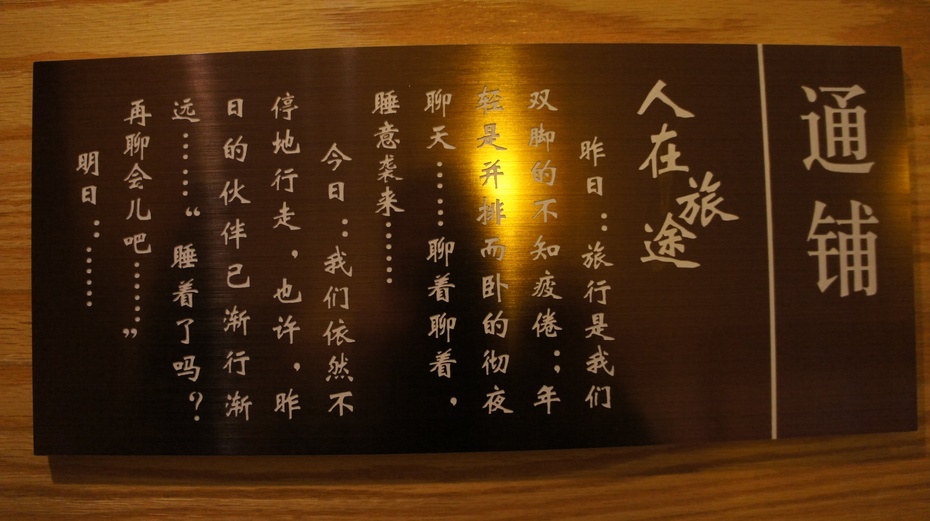 通铺
人在旅途
昨日：旅行是我们
双脚的不知疲倦；年
轻是并排而卧的彻夜
聊天……聊着聊着，
睡意袭来……
今日：我们依然不
停地行走，也许，昨
日的伙伴已渐行渐
远……“睡着了吗？
再聊会儿吧……”
明日：……